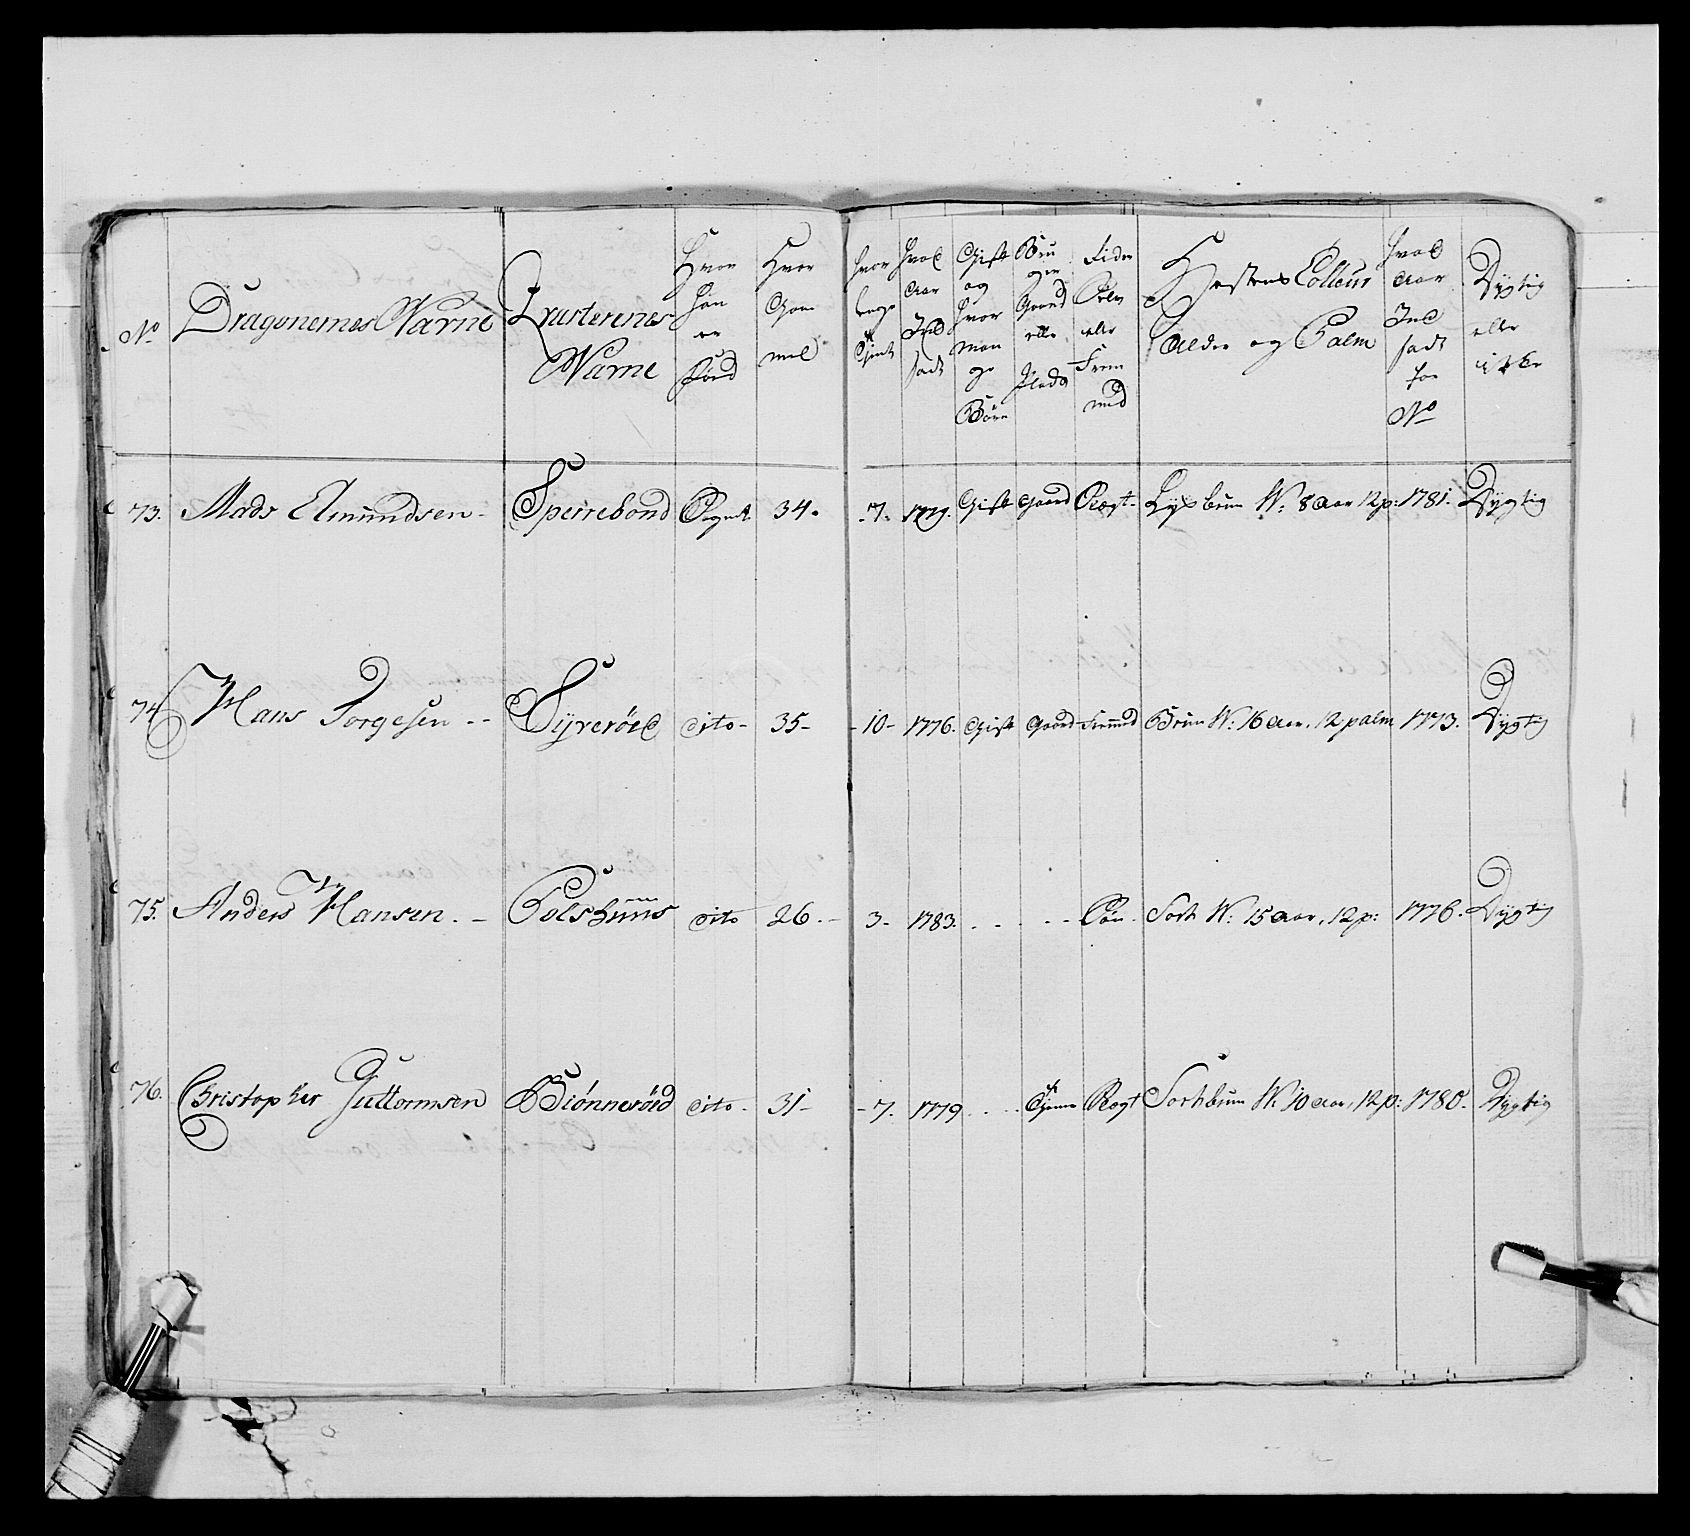 No Dragonernes Navne Qvarterenes Navne Hvor Han er Fød Hvor Gam mel hvor længe tient hvad Aar Ind sadt Gift og hvor man ge Børn Bru ger Gaard eller Plads Hestens Colleur Alder og Palm hvad Aar Ind sadt for No Dygtig eller ikke
73. Mads Amundsen - Sperrebond 34. 7. 1779. Gift Gaard Rogt. Lysbrun W: 8 Aar 12 p: 1781. Dygtig
74. Hans Torgesen - Syverød dito - 35 - 10 - 1776. Gift Gaard Fremmd Brun W: 16 Aar, 12 palm 1773. Dygtig
75. Anders Hansen. - dito 26. - 3 - 1783. Sort W: 15 Aar, 12 p: 1776. Dygtig
76. Christopher Guttormsen Biønnerød dito - 31 - 7. 1779 Tiener Rogt Sortbrun W: 10 Aar, 12 p: 1780. Dygtig